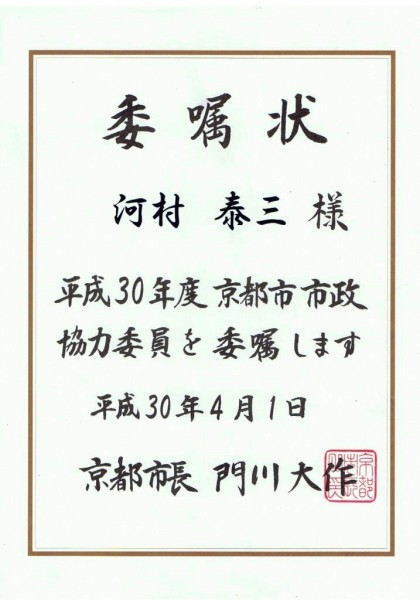 委嘱状
河村 泰三 様
平成30年度 京都市市政
協力委員を委嘱します
平成30年4月1日
京都市長 門川大作